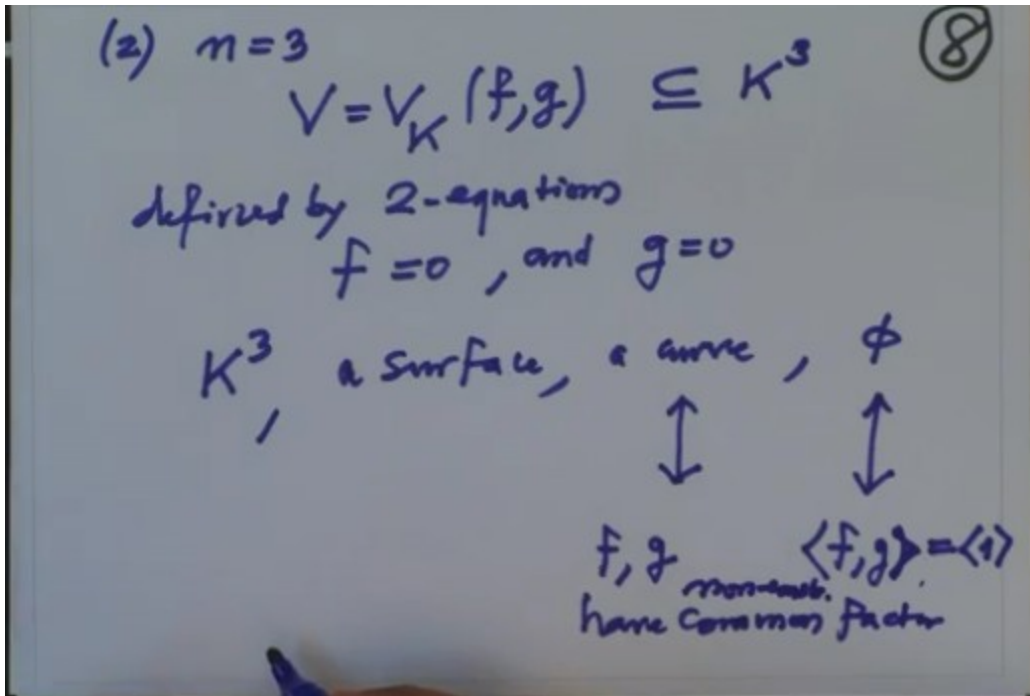 (2) n=3 ⑧
V = V_K (f,g) ⊆ K³
defined by 2-equations
f =0 , and g=0
K³, a surface, a curve, ϕ
↕ ↕
f, g ⟨f,g⟩=⟨1⟩
non-const.
have common factor